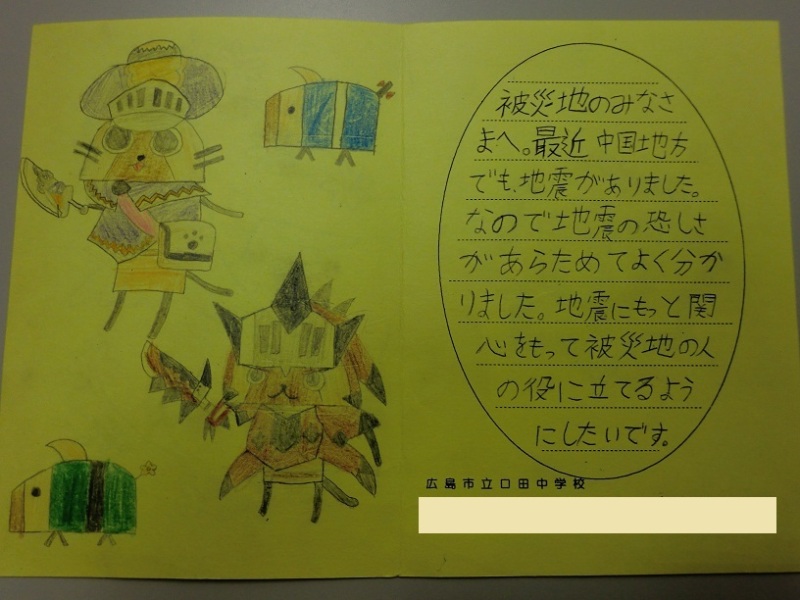 被災地のみなさ
まへ。最近中国地方
でも、地震がありました。
なので地震の恐しさ
があらためてよく分か
りました。地震にもっと関
心をもって被災地の人
の役に立てるよう
にしたいです。
広島市立口田中学校